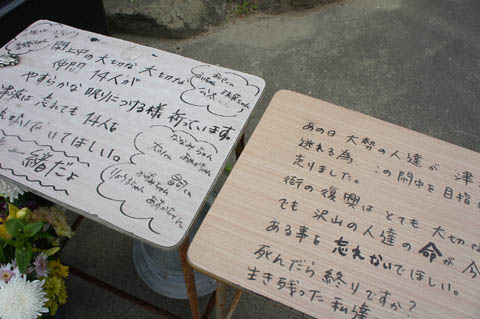 閖上中の大切な大切な
仲間 14人が
やすらかな眠りにつける様 祈っています。
津波は忘れても 14人を
ないでいてほしい。
と一緒だよ
ななみちゃん
りょうちゃん
かずみちゃん
あの日 大勢の人達が 津
逃れる為 この閖中を目指
走りました。
街の復興は とても 大切な
でも 沢山の人達の 命が 今
ある事を 忘れないでほしい。
死んだら 終りですか?
生き残った 私達